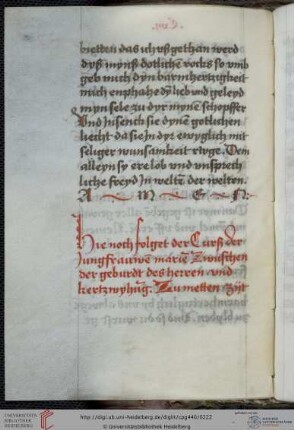 bietten das ich uß gethan werd
dyß mynß dotlichen rocks so umb
geb mich dyn barmhertzigkeit
mich enphahe dÿ lieb vnd geleyd
myn sele zu dyr mynē schopffer
Vnd in senck sie dynē gotlichen
liecht da sie in dyr ewyglich mit
seliger wunsamkeit rwge. Dem
alleyn sy ere lob vnd vnsprech
liche freyd In weltē der welten.
A M E N
Hie noch folget der Curß der
Jungfrauwen marie Zwuschen
der geburdt des herren vnd
kertzwyhūg. Zu metten Zÿt
UNIVERSITÄTS-
BIBLIOTHEK
HEIDELBERG
http://digi.ub.uni-heidelberg.de/diglit/cpg440/0222
© Universitätsbibliothek Heidelberg